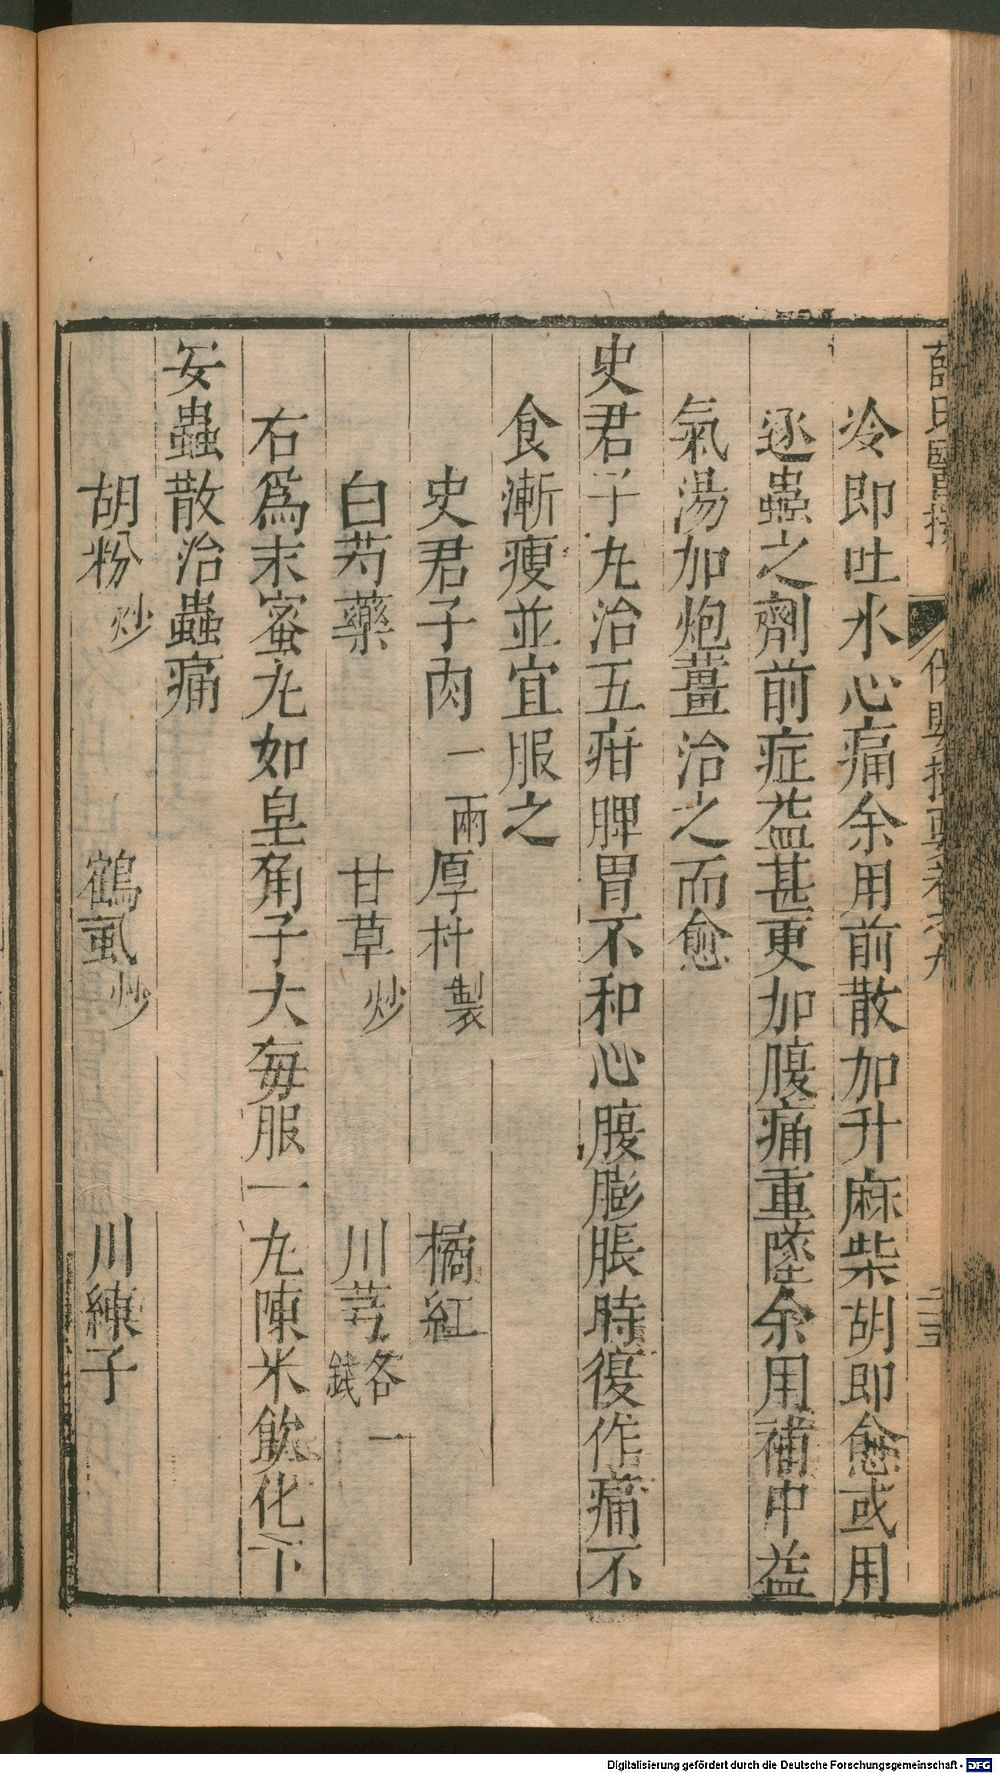 薛氏醫按
保嬰撮要卷之九
二五
冷即吐水心痛余用前散加升麻柴胡即愈或用
逐蟲之劑前症益甚更加腹痛重墜余用補中益
氣湯加炮薑治之而愈
史君子丸治五疳脾胃不和心腹膨脹時復作痛不
食漸瘦並宜服之
史君子肉一兩 厚朴製 橘紅
白芍藥 甘草炒 川芎各一錢
右為末蜜丸如皂角子大每服一丸陳米飲化下
安蟲散治蟲痛
胡粉炒 鶴虱炒 川練子
Digitalisierung gefördert durch die Deutsche Forschungsgemeinschaft - DFG